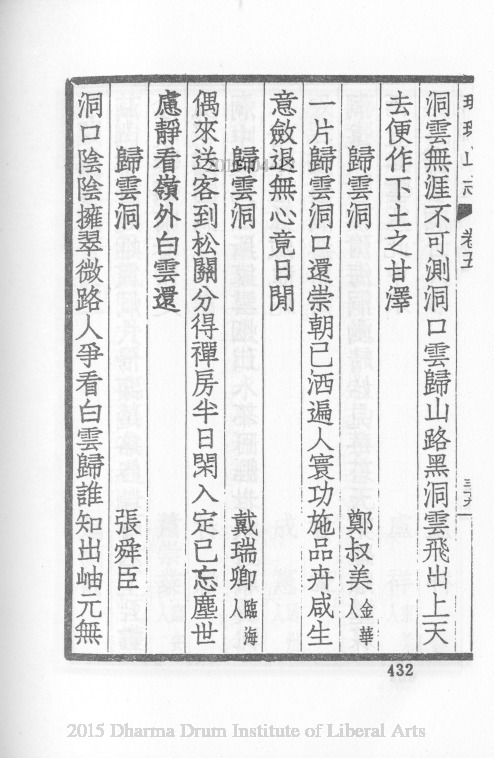 琅琊山志 卷五 三六
洞雲無涯不可測洞口雲歸山路黑洞雲飛出上天
去便作下土之甘澤
歸雲洞 鄭叔美 金華人
一片歸雲洞口還崇朝已洒遍人寰功施品卉咸生
意斂退無心竟日閒
歸雲洞 戴瑞卿 臨海人
偶來送客到松關分得禪房半日閑入定已忘塵世
慮靜看嶺外白雲還
歸雲洞 張舜臣
洞口陰陰擁翠微路人爭看白雲歸誰知出岫元無
432
2015 Dharma Drum Institute of Liberal Arts